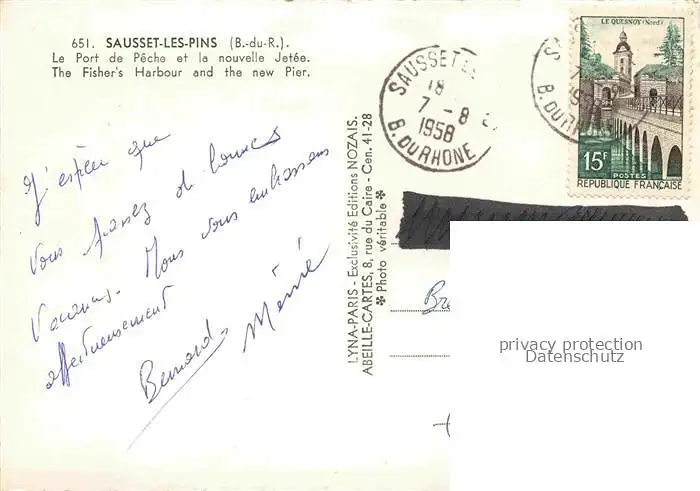 651. SAUSSET-LES-PINS (B.-du-R.).
Le Port de Pêche et la nouvelle Jetée.
The Fisher's Harbour and the new Pier.
J'espère que
vous passez de bonnes
vacances. Nous vous embrassons
affectueusement
Bernard
LYNA-PARIS - Exclusivité Editions NOZAIS.
ABEILLE-CARTES, 8, rue du Caire - Cen. 41-28
✻ Photo véritable ✻
SAUSSET
18
7 - 8
1958
B. DU RHONE
LE QUESNOY (Nord)
15F
POSTES
REPUBLIQUE FRANÇAISE
Bre
privacy protection
Datenschutz